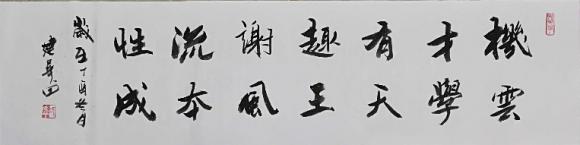 機雲
才學
有天
趣王
謝風
流本
性成
歲在丁酉月